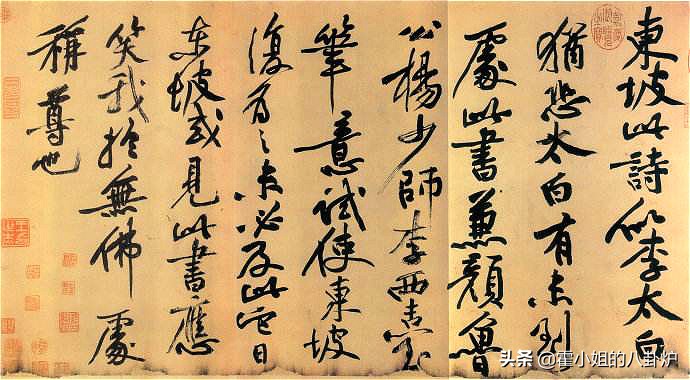 東坡此詩似李太白
猶恐太白有未到
處此書兼顏魯
公楊少師李西臺
筆意試使東坡
復為之未必及此它日
東坡或見此書應
笑我於無佛處
稱尊也
头条 @霍小姐的八卦炉